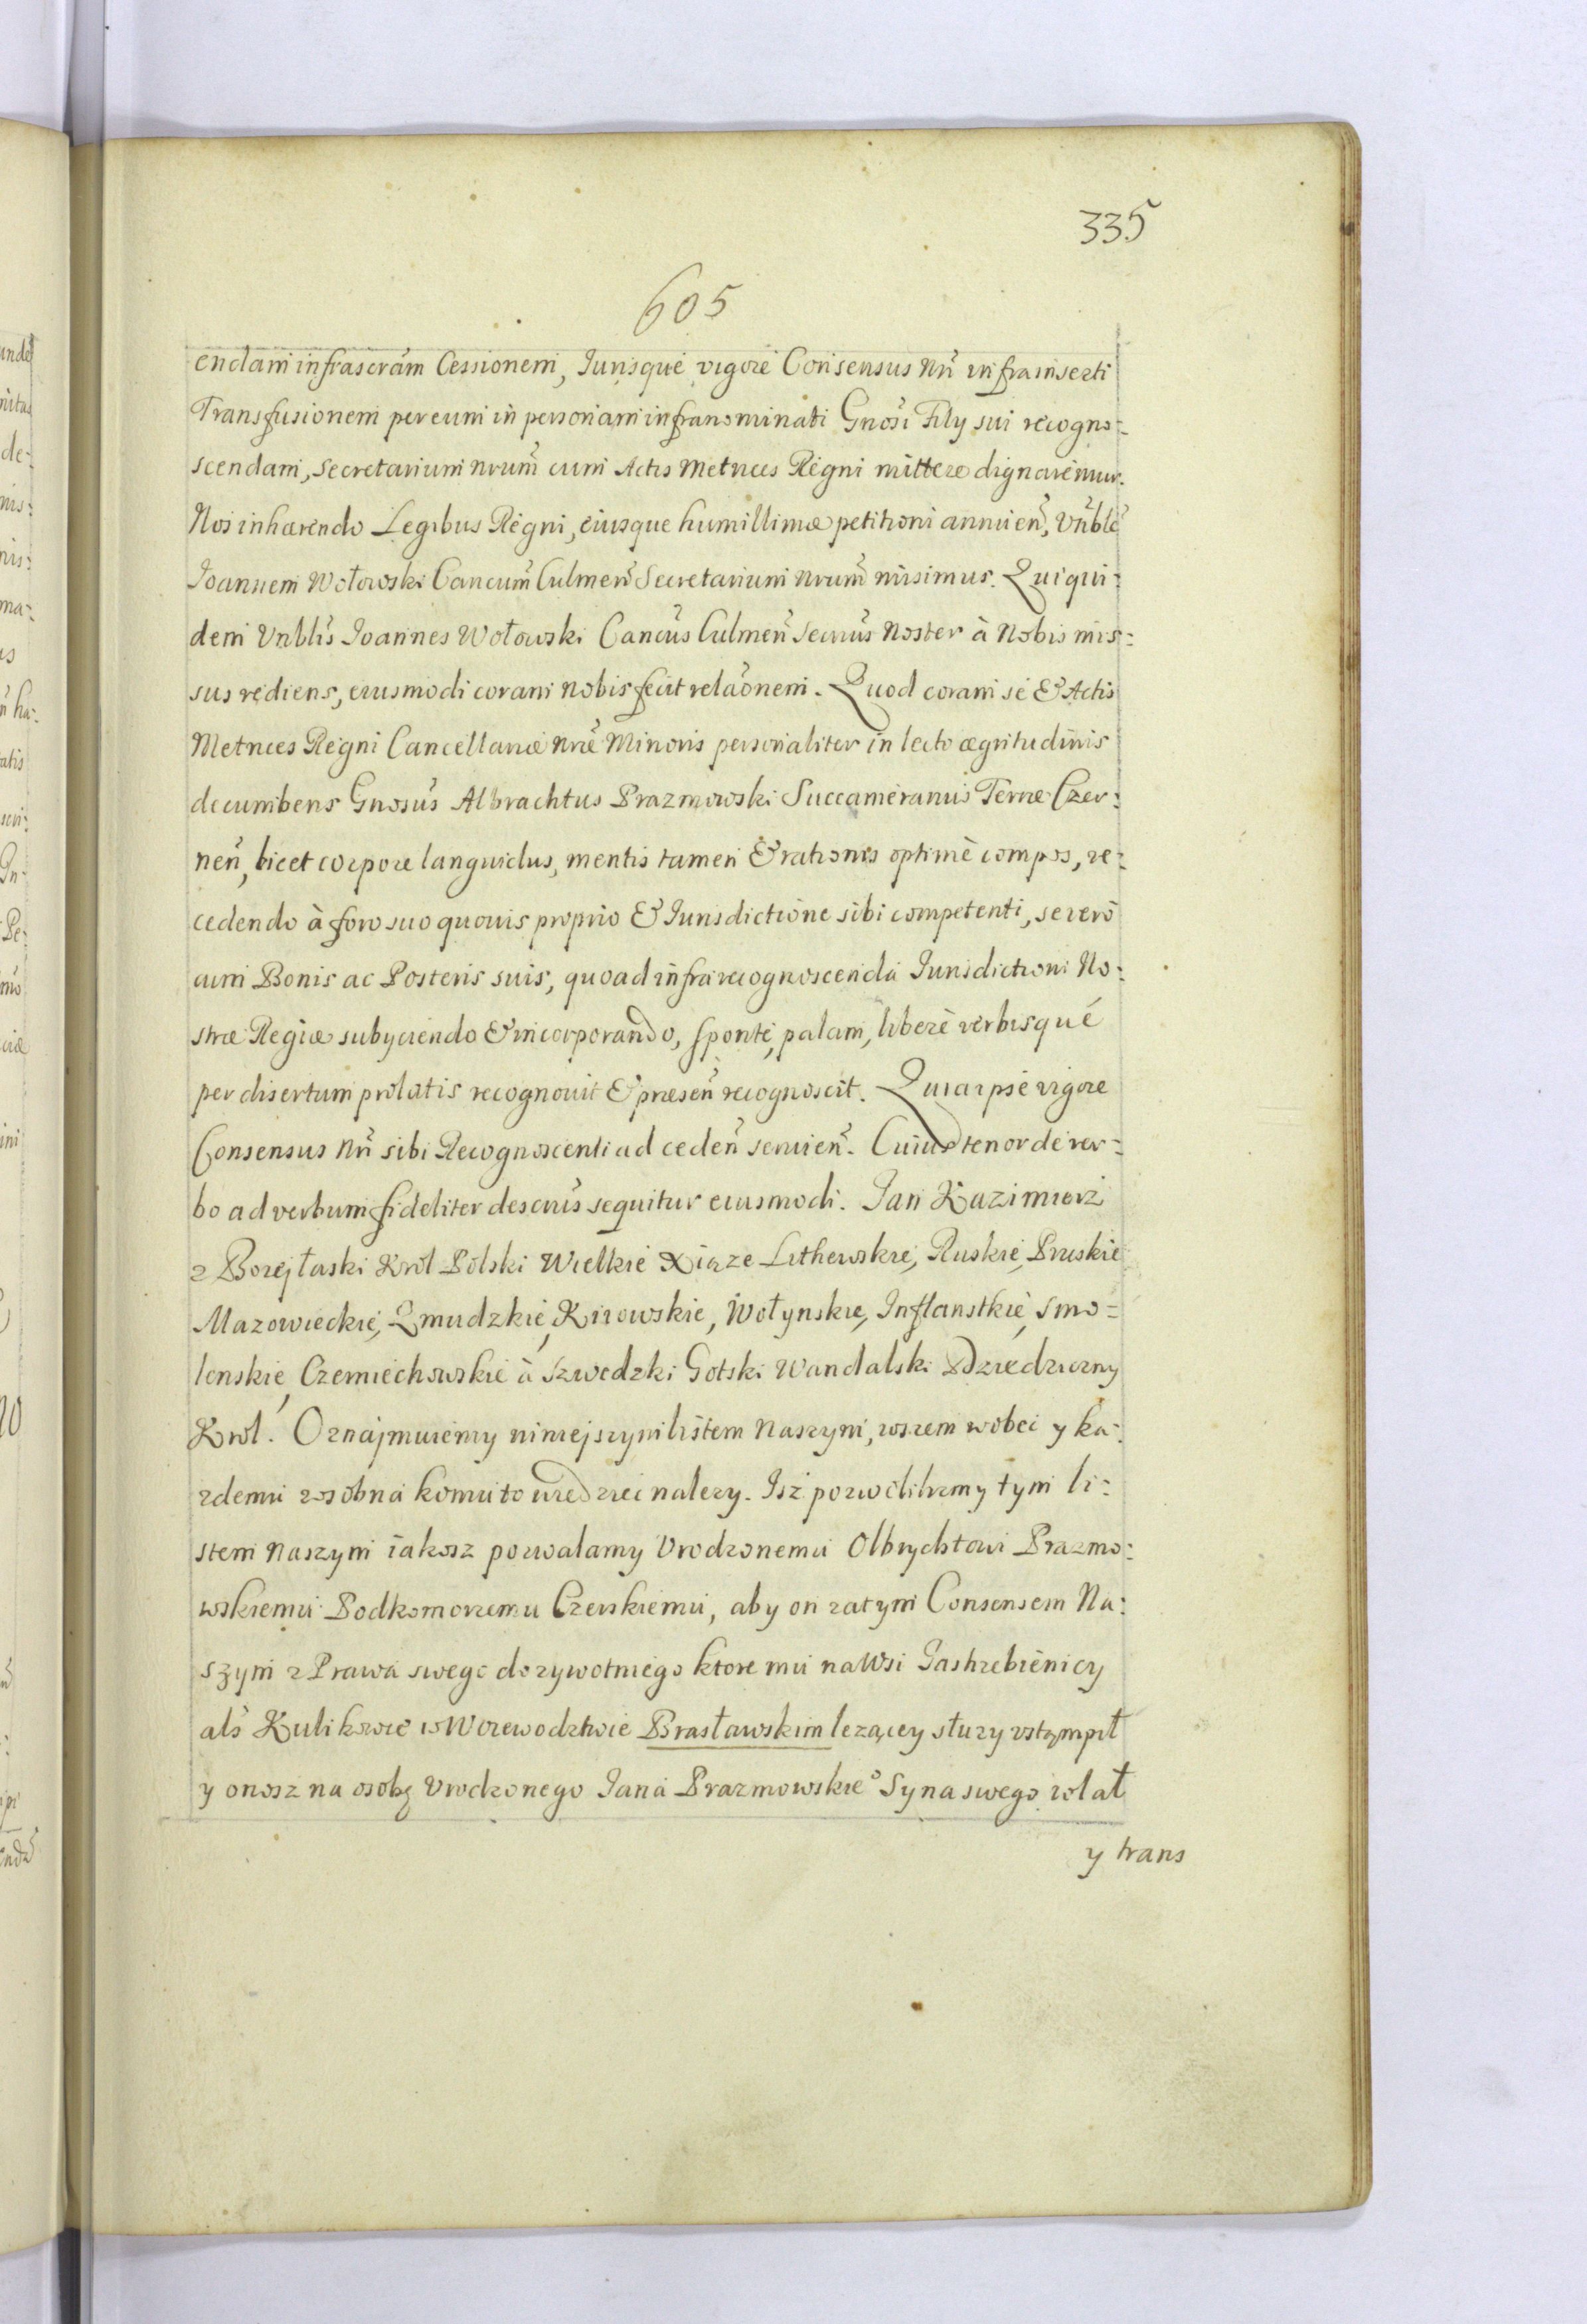 335
605
endam infrascrãm Cessionem, Jurisque vigore Consensus Nrĩ infrainserti
Transfusionem per eum in personam infranominati Gnosi Filÿ sui recogno:
scendam, Secretarium nrum̃ cum Actis Metrices Regni mittere dignaremur.
Nos inhærendo Legibus Regni, eiusque humillimæ petitioni annuen̄, Vn̄blẽ
Joannem Wołowski Cancum̃ Culmen̄ Secretarium nrum̃ misimus. Qui qui:
dem Vnblis̃ Joannes Wołowski Cancus̃ Culmen̄ Secrius̃ Noster à Nobis mis:
sus rediens, eiusmodi coram nobis fecit relaõnem. Quod coram se & Actis
Metrices Regni Cancellariæ nræ̃ Minoris personaliter in lecto ægritudinis
decumbens Gnosus̃ Albrachtus Prazmowski Succameranus Terræ Czer:
nen̄, licet corpore languidus, mentis tamen & rationis optimè compos, re:
cedendo à foro suo quouis proprio & Jurisdictione sibi competenti, se verò
cum Bonis ac Posteris suis, quoad infra recognoscenda Jurisdictioni No:
stræ Regiæ subÿciendo & incorporando, sponte, palam, liberè verbisque
per disertum prolatis recognouit & præsen̄ recognoscit. Quia ipse vigore
Consensus Nrĩ sibi Recognoscenti ad ceden̄ seruien̄. Cuius tenor de ver:
bo ad verbum fideliter descrius̃ sequitur eiusmodi. Jan Kazimierz
z Bozej łaski Krol Polski Wielkie Xiąze Lithewskie, Ruskie, Pruskie
Mazowieckie, Zmudzkie, Kiiowskie, Wołynskie, Inflanstkie, Smo=
lenskie, Czerniechowskie à Szwedzki Gotski Wandalski Dziedziczny
Krol. Oznajmuiemy niniejszym listem Naszym, wszem wobec y ka:
zdemu zosobna komu to wiedziec nalezy. Isz pozwolilismy tym li:
stem Naszym iakosz pozwalamy Vrodzonemu Olbrychtowi Prazmo:
wskiemu Podkomorzemu Czerskiemu, aby on zatym Consensem Na:
szym z Prawa swego dozywotniego ktore mu na Wsi Jastrzebienicy
als̃ Kulikowie w Woiewodztwie Brasławskim lezącey słuzy vstąmpił
y onosz na osobę Vrodzonego Jana Prazmowskie° Syna swego wlał
y trans